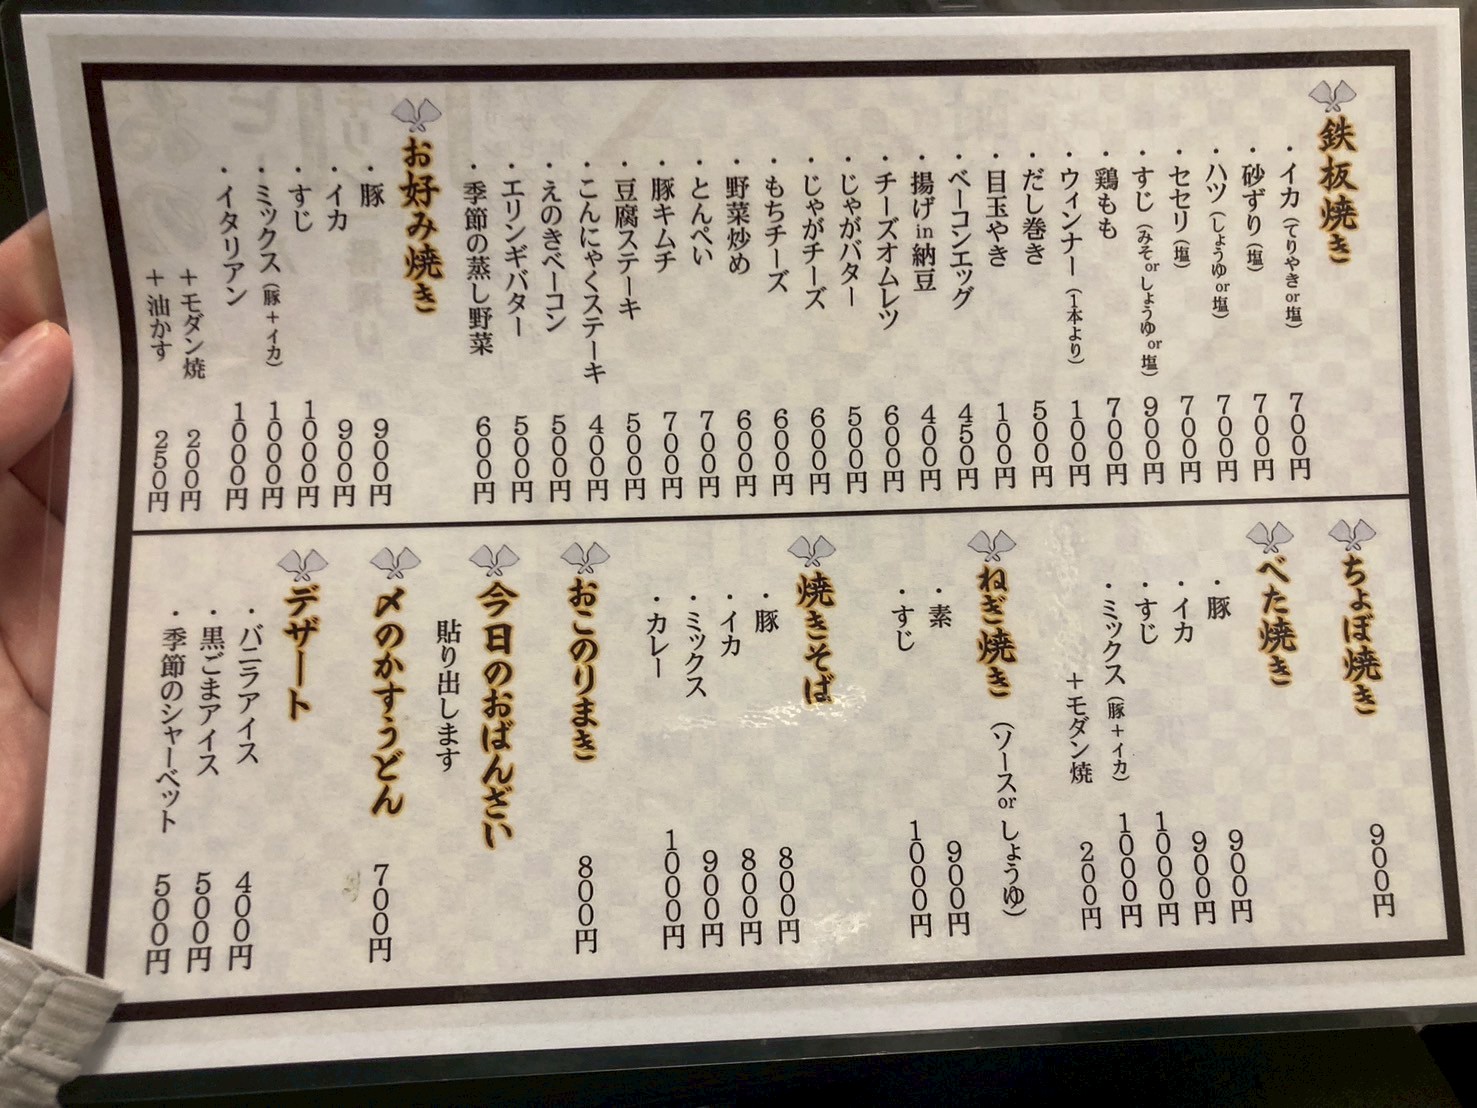 鉄板焼き
・イカ（てりやきor塩） 700円
・砂ずり（塩） 700円
・ハツ（しょうゆor塩） 700円
・セセリ（塩） 700円
・すじ（みそorしょうゆor塩） 900円
・鶏もも 700円
・ウィンナー（1本より） 100円
・だし巻き 500円
・目玉やき 100円
・ベーコンエッグ 450円
・揚げin納豆 400円
・チーズオムレツ 600円
・じゃがバター 500円
・じゃがチーズ 600円
・もちチーズ 600円
・野菜炒め 600円
・とんぺい 700円
・豚キムチ 700円
・豆腐ステーキ 500円
・こんにゃくステーキ 400円
・えのきベーコン 500円
・エリンギバター 500円
・季節の蒸し野菜 600円
お好み焼き
・豚 900円
・イカ 900円
・すじ 1000円
・ミックス（豚＋イカ） 1000円
・イタリアン 1000円
＋モダン焼 200円
＋油かす 250円
ちょぼ焼き 900円
べた焼き
・豚 900円
・イカ 900円
・すじ 1000円
・ミックス（豚＋イカ） 1000円
＋モダン焼 200円
ねぎ焼き（ソースorしょうゆ）
・素 900円
・すじ 1000円
焼きそば
・豚 800円
・イカ 800円
・ミックス 900円
・カレー 1000円
おこのりまき 800円
今日のおばんざい
貼り出します
〆のかすうどん 700円
デザート
・バニラアイス 400円
・黒ごまアイス 500円
・季節のシャーベット 500円